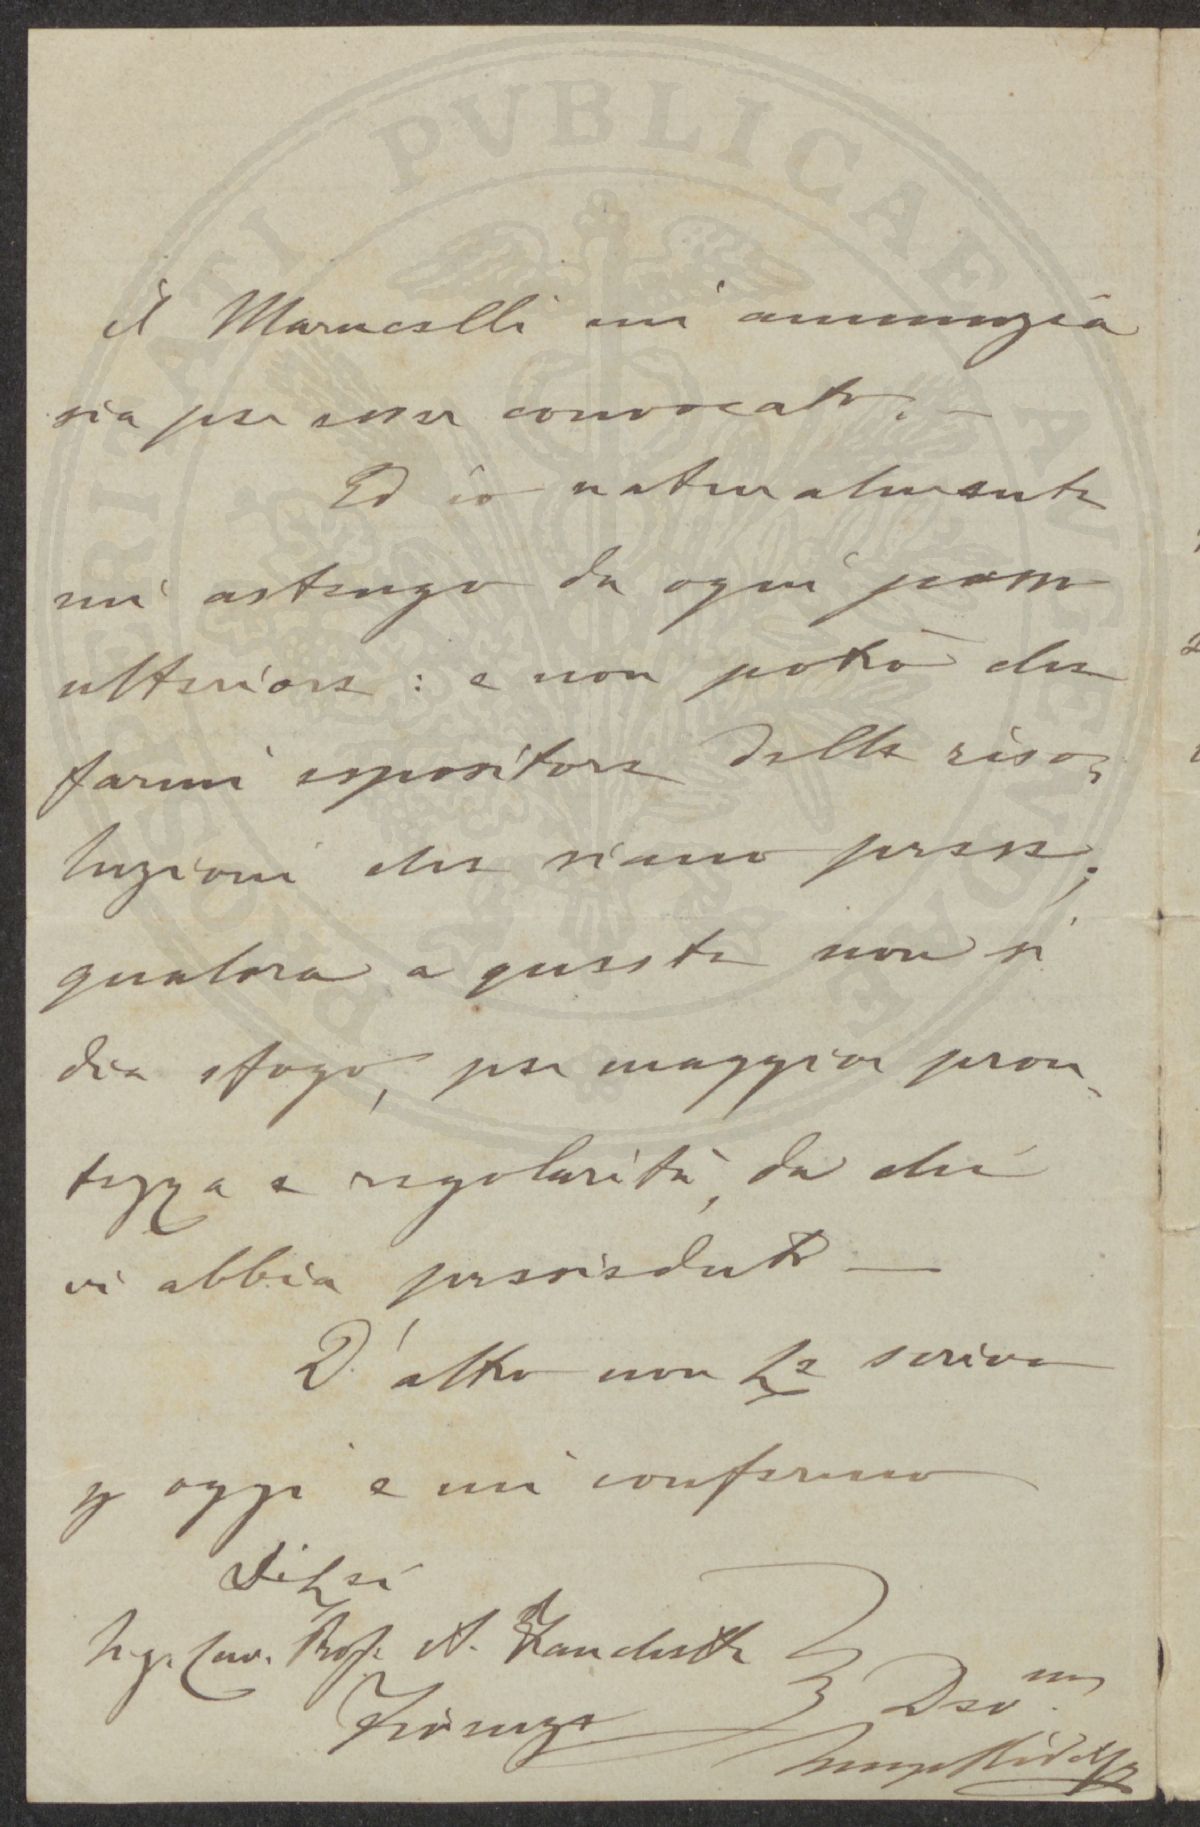 il Marucelli mi annunzia
sia per esser convocato. —
Ed io naturalmente
mi astengo da ogni passo
ulteriore: e non potrò che
farmi espositore delle riso-
luzioni che siano prese;
qualora a queste non si
dia sfogo, per maggior pron-
tezza e regolarità, da chi
vi abbia presieduto —
D'altro non Le scrivo
p oggi e mi confermo
Di Lei
Sig. Cav. Prof. A. Franchetti
Firenze
Dev.mo
PROSPERITATI PUBLICAE AUGENDAE